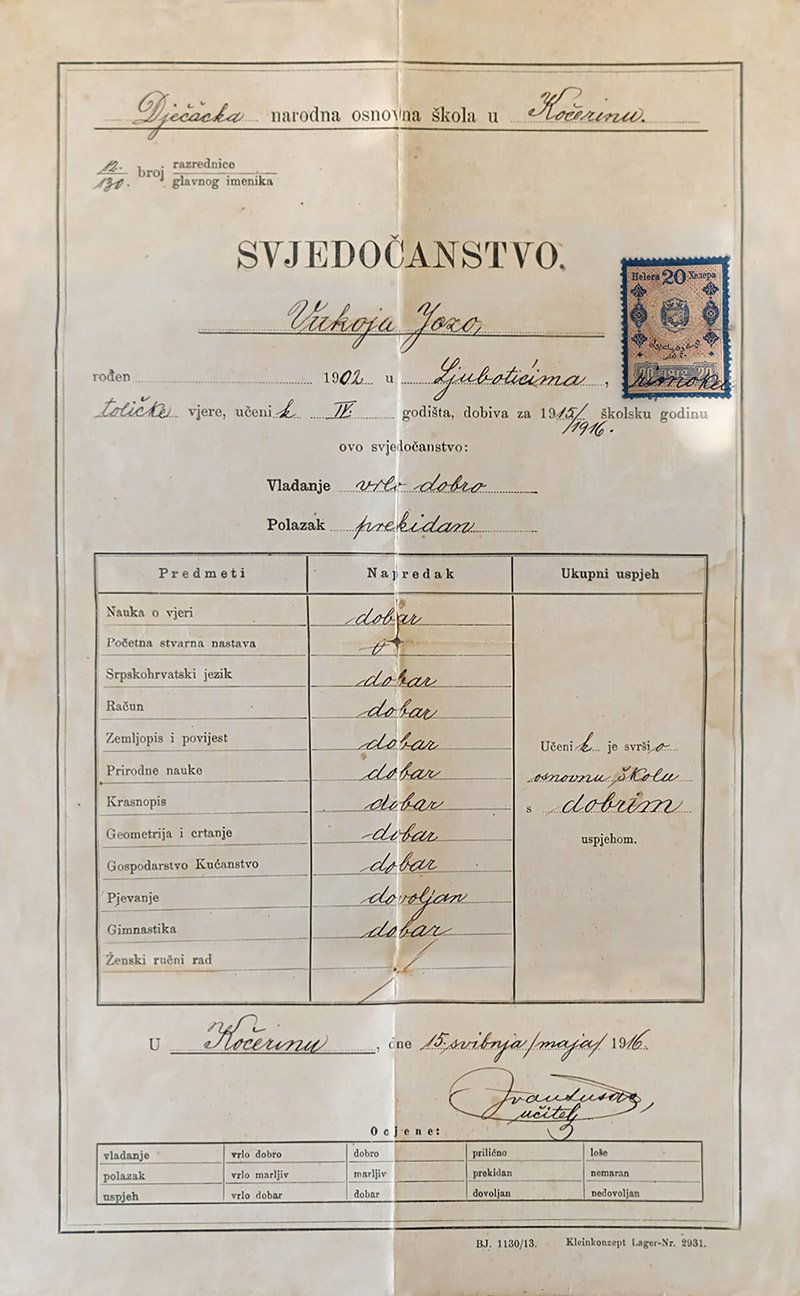 Dječačka narodna osnovna škola u Kočerinu.
12. razrednice
130. broj glavnog imenika
SVJEDOČANSTVO.
Helera 20 Хелера
20 1912 20
Vukoja Jozo,
rođen 1902 u Ljuboticima, rimoka
toličke vjere, učenik IV. godišta, dobiva za 1915/1916. školsku godinu
ovo svjedočanstvo:
Vladanje vrlo dobro
Polazak prekidan
Predmeti Napredak Ukupni uspjeh
Nauka o vjeri dobar
Početna stvarna nastava 0
Srpskohrvatski jezik dobar
Račun dobar
Zemljopis i povijest dobar
Učenik je svršio
Prirodne nauke dobar
osnovnu školu
Krasnopis dobar
s dobrim
Geometrija i crtanje dobar
uspjehom.
Gospodarstvo Kućanstvo dobar
Pjevanje dovoljan
Gimnastika dobar
Ženski ručni rad
U Kočerinu, dne 15. svibnja/maja/ 1916.
učitelj
Ocjene:
vladanje vrlo dobro dobro prilično loše
polazak vrlo marljiv marljiv prekidan nemaran
uspjeh vrlo dobar dobar dovoljan nedovoljan
BJ. 1130/13. Kleinkonzept Lager-Nr. 2931.